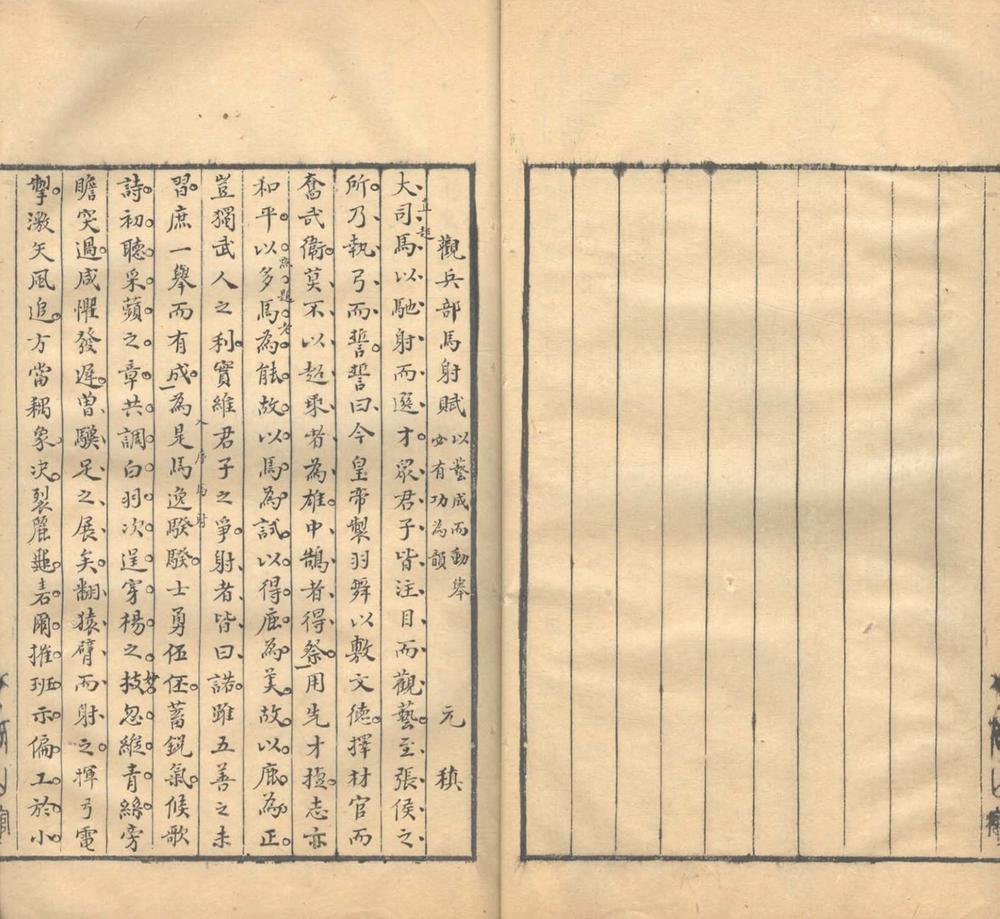 觀兵部馬射賦 以藝成而動舉必有功為韻 元稹
大司馬以馳射而選才眾君子皆注目而觀藝至張侯之
直起
所乃執弓而誓誓曰今皇帝製羽舞以敷文德擇材官而
奮武衛莫不以超乘者為雄中鵠者得祭用先才擅志亦
和平以多馬為能故以馬為試以得鹿為美故以鹿為正
豈獨武人之利實維君子之爭射者皆曰諾雖五善之未
習庶一舉而有成為是馬逸騤騤士勇伾伾蓄銳氣候歌
入序馬射
詩初聽采蘋之章共調白羽次逞穿楊之技忽縱青絲旁
瞻突過咸懼發遲曾驥足之展矣翻猿臂而射之揮弓電
掣激矢風追方當耦象決裂麗龜砉爾摧班示偏工於小